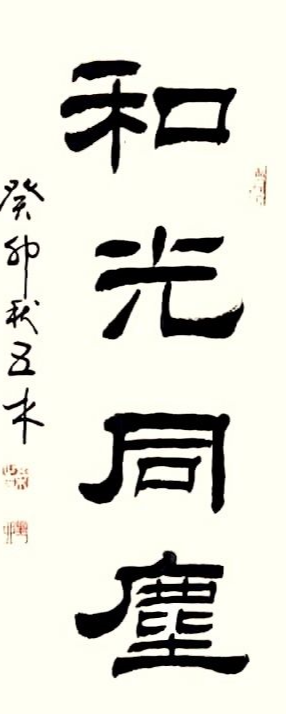 和光同塵
癸卯秋五木